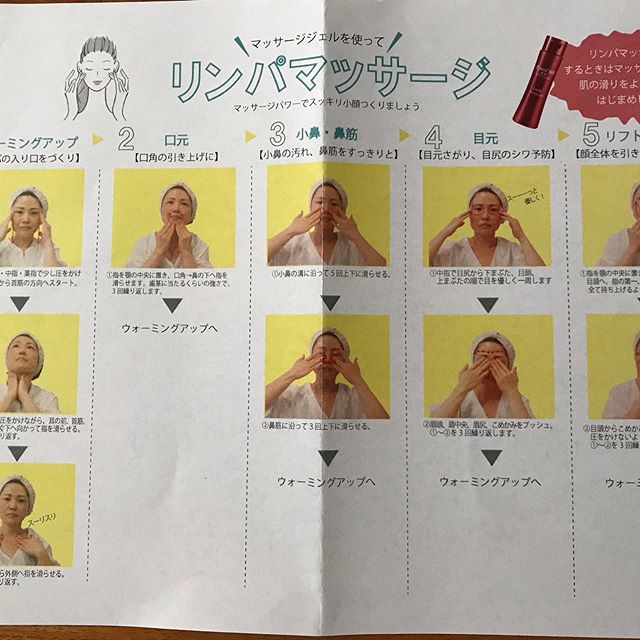 マッサージジェルを使って
リンパマッサージ
マッサージパワーでスッキリ小顔つくりましょう
リンパマッ
するときはマッサ
肌の滑りをよ
はじめ
ーミングアップ
の入り口をづくり】
・中指・薬指で少し圧をかけ
から首筋の方向へスタート。
圧をかけながら、耳の前、首筋、
下へ向かって指を滑らせる。
り返す。
スーリスリ
ら外側へ指を滑らせる。
り返す。
2 口元
【口角の引き上げに】
①指を顎の中央に置き、口角→鼻の下へ指を
滑らせます。歯茎に当たるくらいの強さで、
3回繰り返します。
ウォーミングアップへ
3 小鼻・鼻筋
【小鼻の汚れ、鼻筋をすっきりと】
①小鼻の溝に沿って5回上下に滑らせる。
②鼻筋に沿って3回上下に滑らせる。
ウォーミングアップへ
4 目元
【目元さがり、目尻のシワ予防】
スーーーっと
優しく!
①中指で目尻から下まぶた、目頭、
上まぶたの順で目を優しく一周します
②眉頭、眉中央、眉尻、こめかみをプッシュ。
①～②を3回繰り返します。
ウォーミングアップへ
5 リフト
【顔全体を引き
①指を顎の
目頭へ。指の第一、
全て持ち上げるよ
②目頭からこめか
圧をかけないよ
①～②を3回繰
ウォーミング